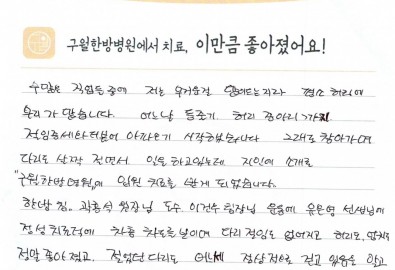 구월한방병원에서 치료, 이만큼 좋아졌어요!
수많은 직업들 중에 저는 무거운걸 옮기는지라 평소 허리에
무리가 많습니다. 어느날 등줄기 허리 종아리까지
저림증세와 더불어 아파오기 시작하였습니다 그래도 참아가며
다리도 살짝 절면서 일을 하고있는데 지인의 소개로
"구월한방병원"에 입원 치료를 하게 되었습니다.
한방 침. 곽종석 원장님 도수 이건우 팀장님 운동에 윤은영 선생님에
정성치료덕에 차츰 차도를 보이며 다리 저림도 없어지고 허리도
정말 좋아졌고. 절었던 다리도 어느새 정상적으로 걷고 있음을 알고